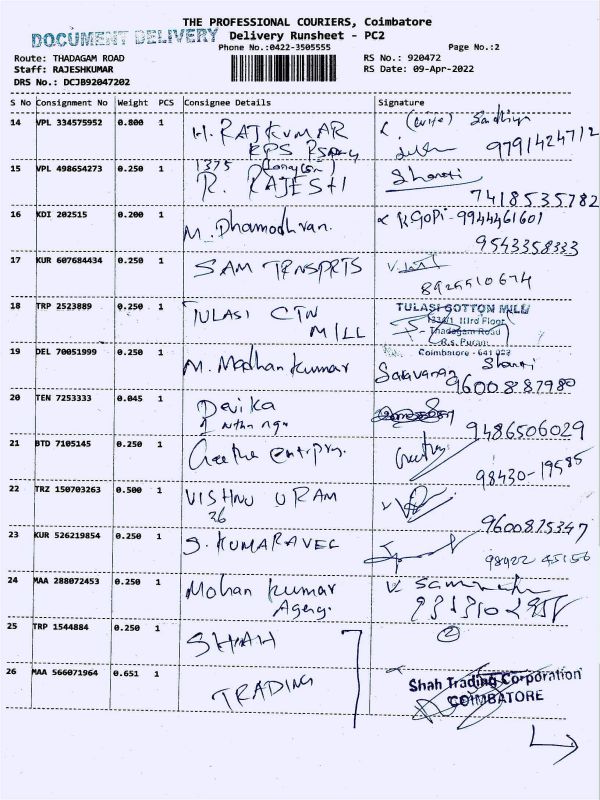 THE PROFESSIONAL COURIERS, Coimbatore
DOCUMENT DELIVERY
Delivery Runsheet - PC2
Phone No.:0422-3505555 Page No.:2
Route: THADAGAM ROAD RS No.: 920472
Staff: RAJESHKUMAR RS Date: 09-Apr-2022
DRS No.: DCJB92047202
S No Consignment No Weight PCS Consignee Details Signature
14 VPL 334575952 0.800 1 H. RAJKUMAR (wife)
KPS 9791424712
15 VPL 498654273 0.250 1 1375
R. RAJESH Sharati
7418535782
16 KDI 202515 0.200 1 M. Dhamodhran. KGopi-9944461601
9543358333
17 KUR 607684434 0.250 1 SAM TRNSPRTS
8925510674
18 TRP 2523889 0.250 1 TULASI CTN MILL TULASI COTTON MILL
IIIrd Floor
Thadagam Road
R.s. Puram
Coimbatore - 641 002
19 DEL 70051999 0.250 1 M. Madhan kumar Saravanan
9600887980
20 TEN 7253333 0.045 1 Devika
9486506029
21 BTD 7105145 0.250 1 Geetha entrprs.
98430-19585
22 TRZ 150703263 0.500 1 VISHNU URAM
36
9600875347
23 KUR 526219854 0.250 1 S. KUMARAVEL
98422 45156
24 MAA 288072453 0.250 1 Mohan kumar
Agengy.
25 TRP 1544884 0.250 1 SHAH 2
26 MAA 566071964 0.651 1 TRADING Shah Trading Corporation
COIMBATORE